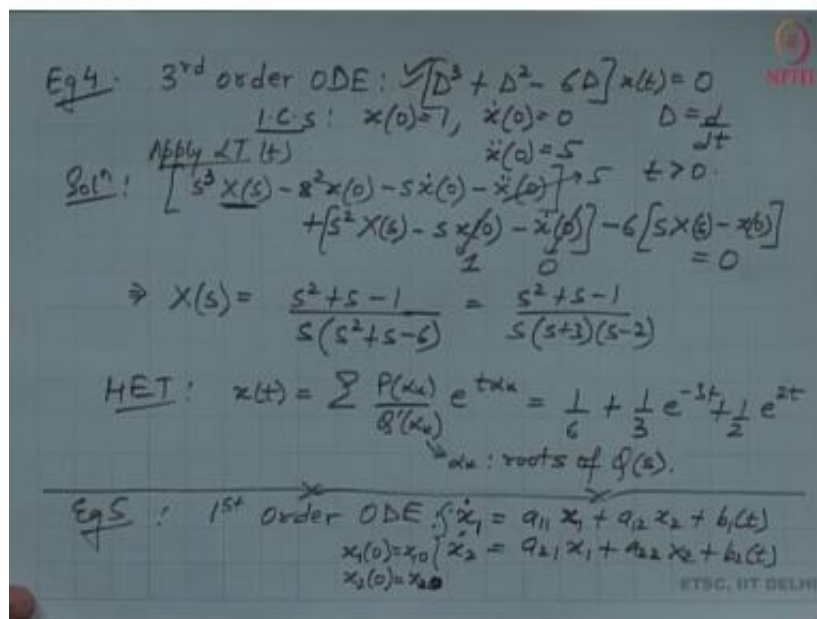 Eg 4. 3rd order ODE: [D³ + D² - 6D] x(t) = 0
NPTEL
I.C.s: x(0)=1, ẋ(0)=0 D = d/dt
Apply LT (t) ẍ(0)=5 t>0.
Solⁿ: [s³ X(s) - s² x(0) - s ẋ(0) - ẍ(0)] → 5
+ [s² X(s) - s x(0) - ẋ(0)] - 6 [s X(s) - x(0)]
1 0 = 0
⇒ X(s) = (s² + s - 1) / (s(s² + s - 6)) = (s² + s - 1) / (s(s+3)(s-2))
HET: x(t) = Σ P(αₖ)/Q'(αₖ) e^{tαₖ} = 1/6 + 1/3 e^{-3t} + 1/2 e^{2t}
αₖ: roots of Q(s).
Eg 5: 1st order ODE: { ẋ₁ = a₁₁ x₁ + a₁₂ x₂ + b₁(t)
x₁(0)=x₁₀ { ẋ₂ = a₂₁ x₁ + a₂₂ x₂ + b₂(t)
x₂(0)=x₂₀
ETSC, IIT DELHI